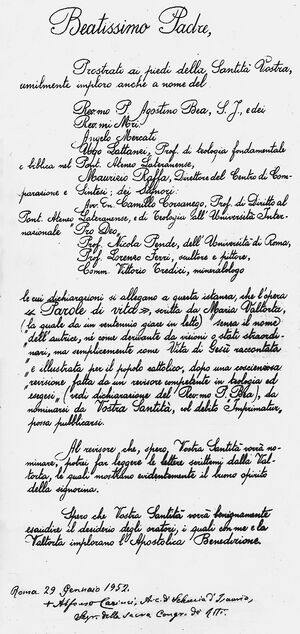 Beatissimo Padre,
Prostrato ai piedi della Santità Vostra,
umilmente imploro anche a nome del
Rev.mo P. Agostino Bea, S. J., e dei
Rev.mi Mri.
Angelo Mercati
Ugo Lattanzi, Prof. di teologia fondamentale
e biblica nel Pont. Ateneo Lateranense,
Maurizio Raffa, Direttore del Centro di Com-
parazione e Sintesi; dei Signori:
Avv. Cn. Camillo Corsanego, Prof. di Diritto al
Pont. Ateneo Lateranense, e di Teologia all'Università Inter-
nazionale "Pro Deo,
Prof. Nicola Pende, dell'Università di Roma,
Prof. Lorenzo Ferri, scultore e pittore,
Comm. Vittorio Tredici, mineralologo
le cui dichiarazioni si allegano a questa istanza, che l'opera
« Parole di vita », scritta da Maria Valtorta,
(la quale da un ventennio giace in letto) senza il nome
dell'autrice, nè come derivante da visioni o stati straordi-
nari, ma semplicemente come Vita di Gesù raccontata
e illustrata per il popolo cattolico, dopo una coscienziosa
revisione fatta da un revisore competente in teologia ed
esegesi, (vedi dichiarazione del Rev.mo P. Bea), da
nominarsi da Vostra Santità, col debito Imprimatur,
possa pubblicarsi.
Al revisore che, spero, Vostra Santità vorrà no-
minare, potrei far leggere le lettere scrittemi dalla Val-
torta, le quali mostrano evidentemente il buono spirito
della signorina.
Spero che Vostra Santità vorrà benignamente
esaudire il desiderio degli oratori, i quali con me e la
Valtorta implorano l'Apostolica Benedizione.
Roma 29 Gennaio 1952.
+ Alfonso Carinci, Arc. d'Seleucia d'Isauria,
Segr. della Sacra Congr. de' Riti.